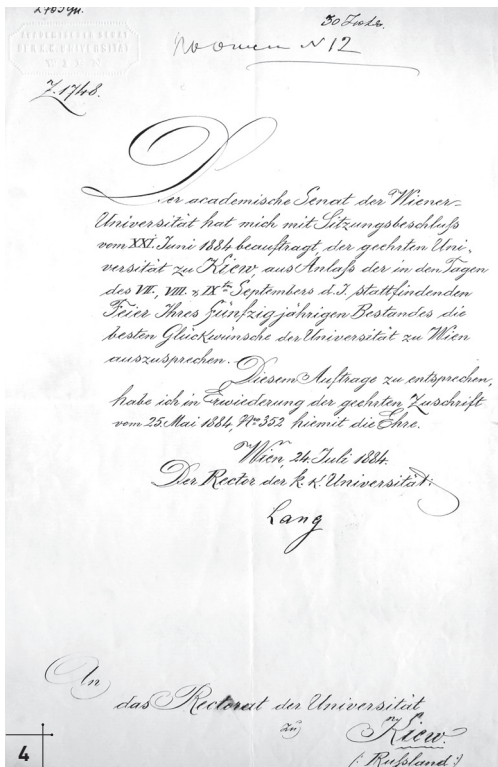 ACADEMISCHER SENAT
DER K.K. UNIVERSITÄT
WIEN
N 12
Z. 1748.
Der academische Senat der Wiener-
Universität hat mich mit Sitzungsbeschluß
vom XXI. Juni 1884 beauftragt, der geehrten Uni-
versität zu Kiew aus Anlaß der in den Tagen
des VII., VIII. & IXten Septembers d. J. stattfindenden
Feier Ihres fünfzigjährigen Bestandes die
besten Glückwünsche der Universität zu Wien
auszusprechen.
Diesem Auftrage zu entsprechen,
habe ich in Erwiederung der geehrten Zuschrift
vom 25. Mai 1884, No 352 hiemit die Ehre.
Wien, 24. Juli 1884.
Der Rector der k. k. Universität:
Lang
An
das Rectorat der Universität
zu
Kiew.
(: Rußland :)
4